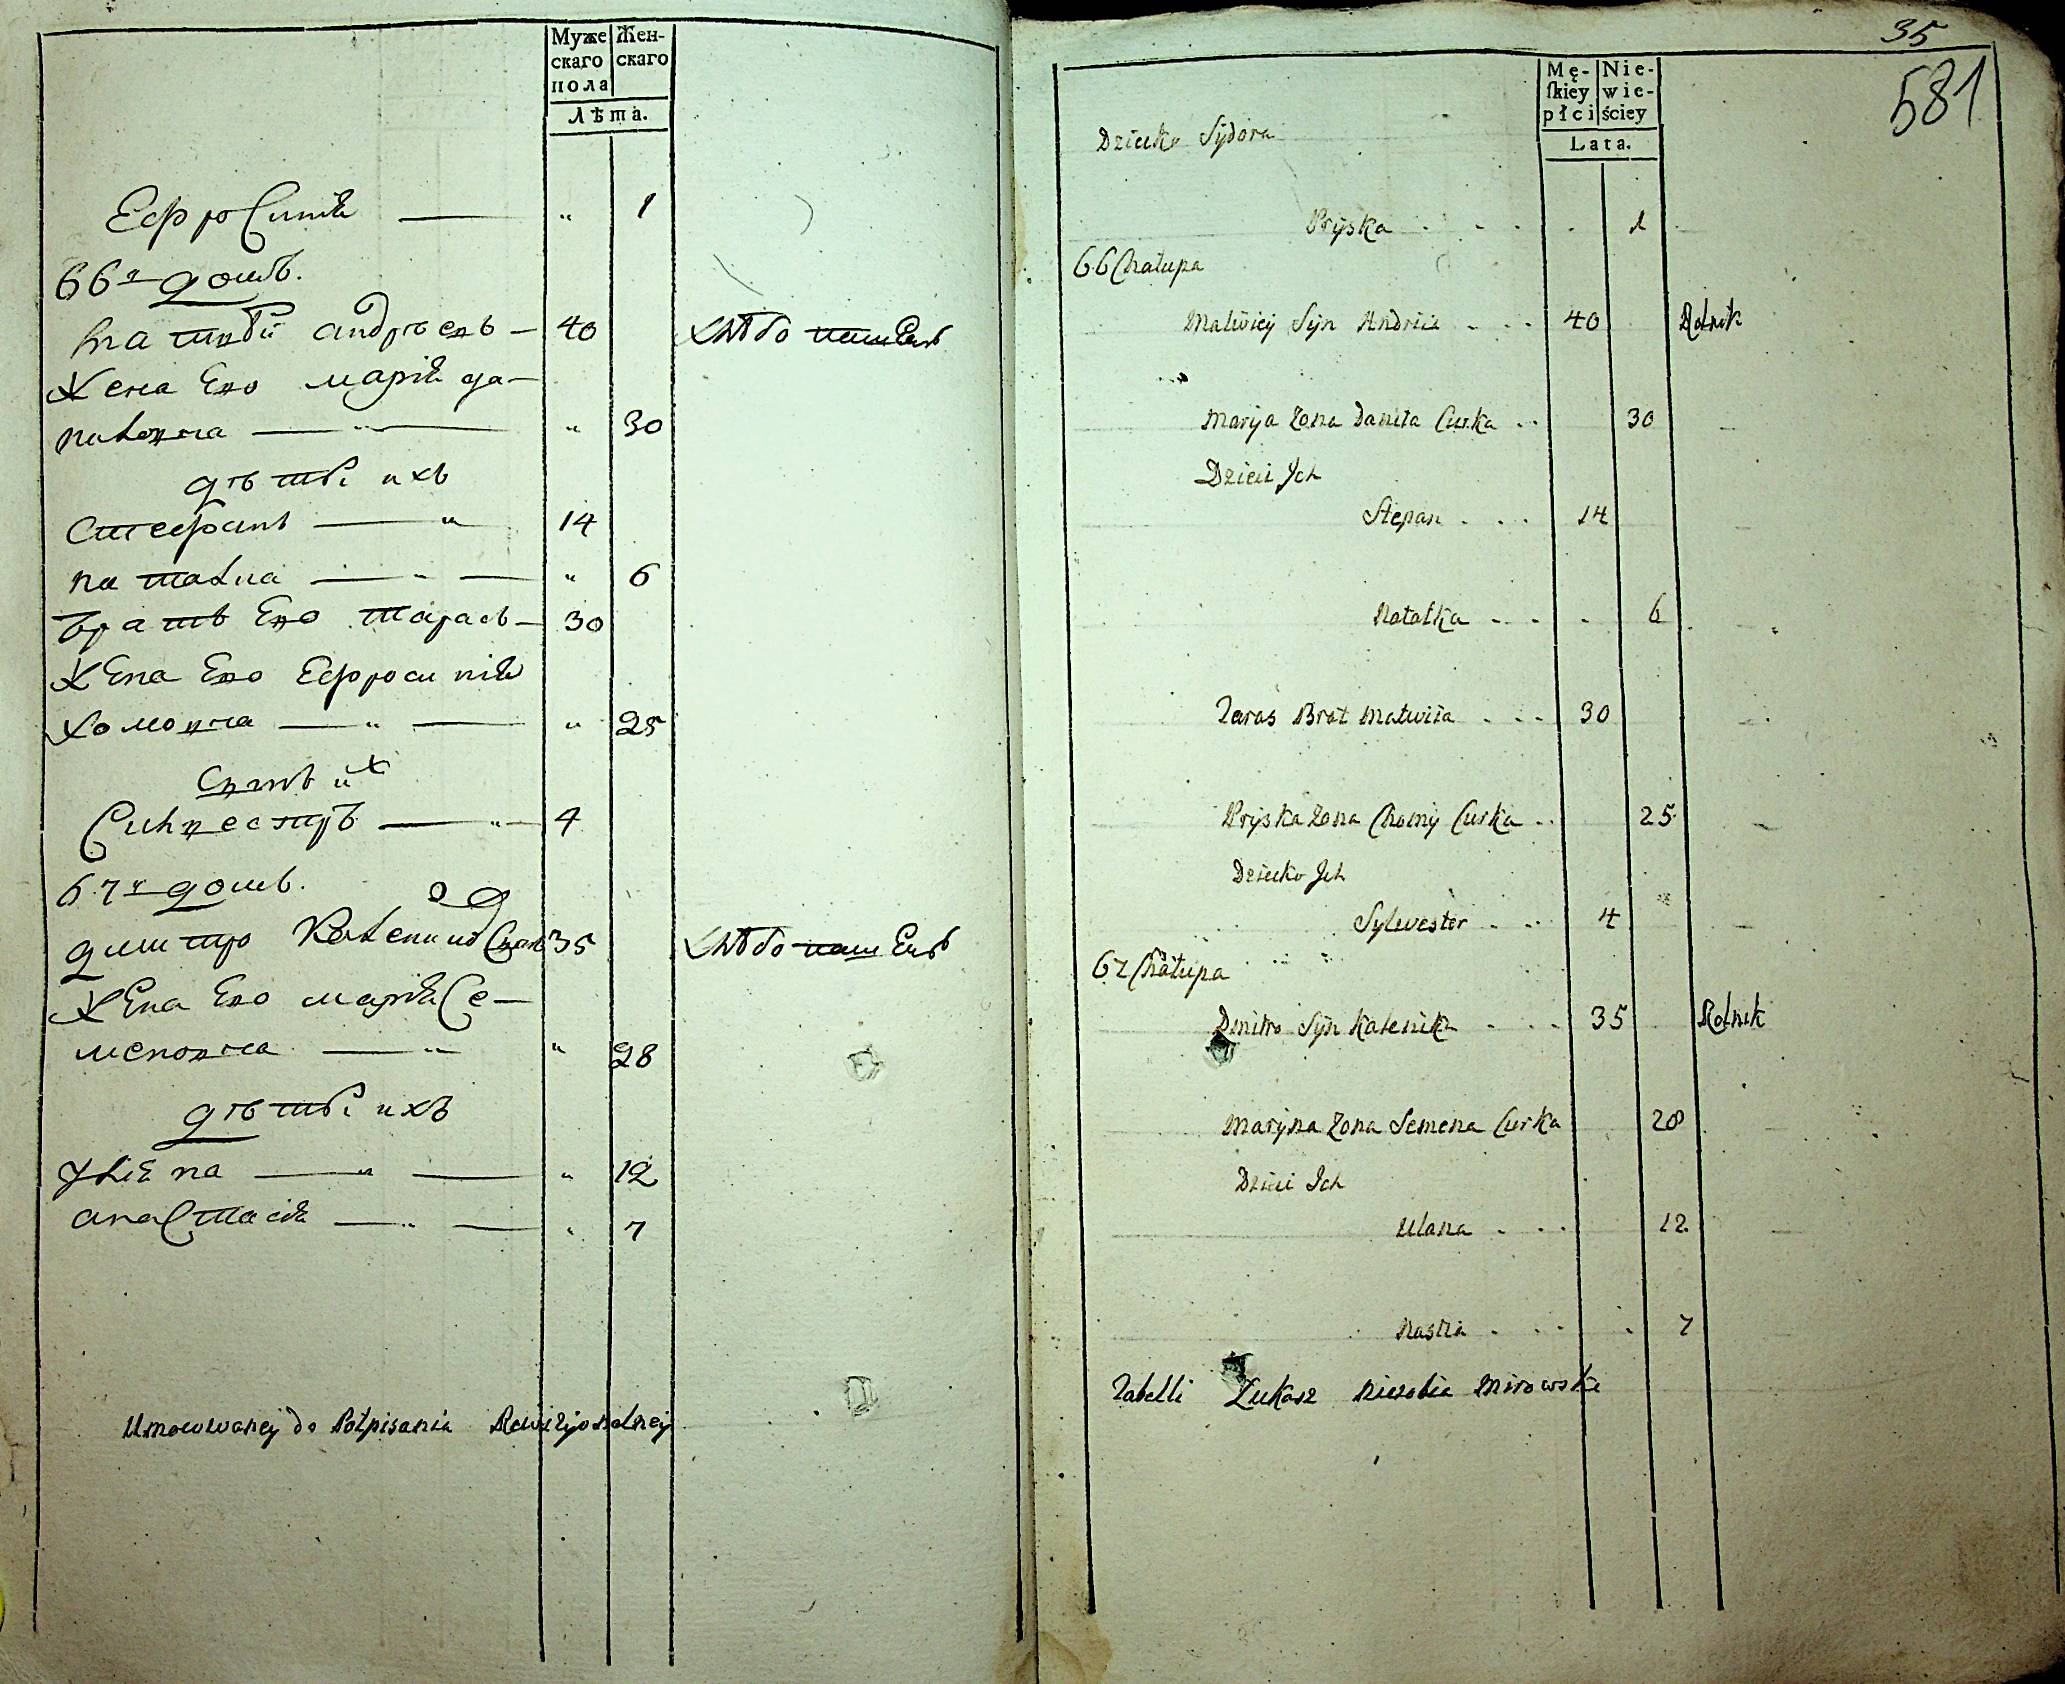 Муже Жен-
скаго скаго
пола
Лѣта.
Ефросинія — " 1
66й домъ.
Матвѣй андрѣевъ — 40 хлѣбопашецъ
Жена Его марія да-
нилѡвна — " — " 30
дѣти ихъ
Стефанъ — " 14
наталиа — " — " 6
братъ Его тарасъ — 30
Жена Его Ефросинія
хомовна — " — " 25
Сынъ ихъ
Силвестръ — " — 4
67й домъ.
димитро Калениковъ Сынъ 35 хлѣбопашецъ
Жена Его марія Се-
меновна — " " 28
дѣти ихъ
Улиѣна — " — " 12
анастасія — " — " 7
Umocowaney do Potpisania Rewizyonalney
35
581
Mę- Nie-
ſkiey wie-
płci ściey
Lata.
Dziecko Sydora
Pryska . . . . . 1
66 Chałupa
Matwiey Syn Andrija . . . 40 Rolnik
Maryja Żona Daniła Curka . . 30
Dzieci Jch
Stepan . . . 14
Natalka . . . . 6
Taras Brat Matwiia . . . 30
Pryska Żona Chomy Curka . . 25
Dziecko Jch
Sylwester . . . 4
67 Chałupa
Dmitro Syn Kalenika . . . 35 Rolnik
Maryna Żona Semena Curka 28
Dzieci Jch
Ulana . . . 12
Nastia . . . . 7
Tabelli Łukasz Mirowski